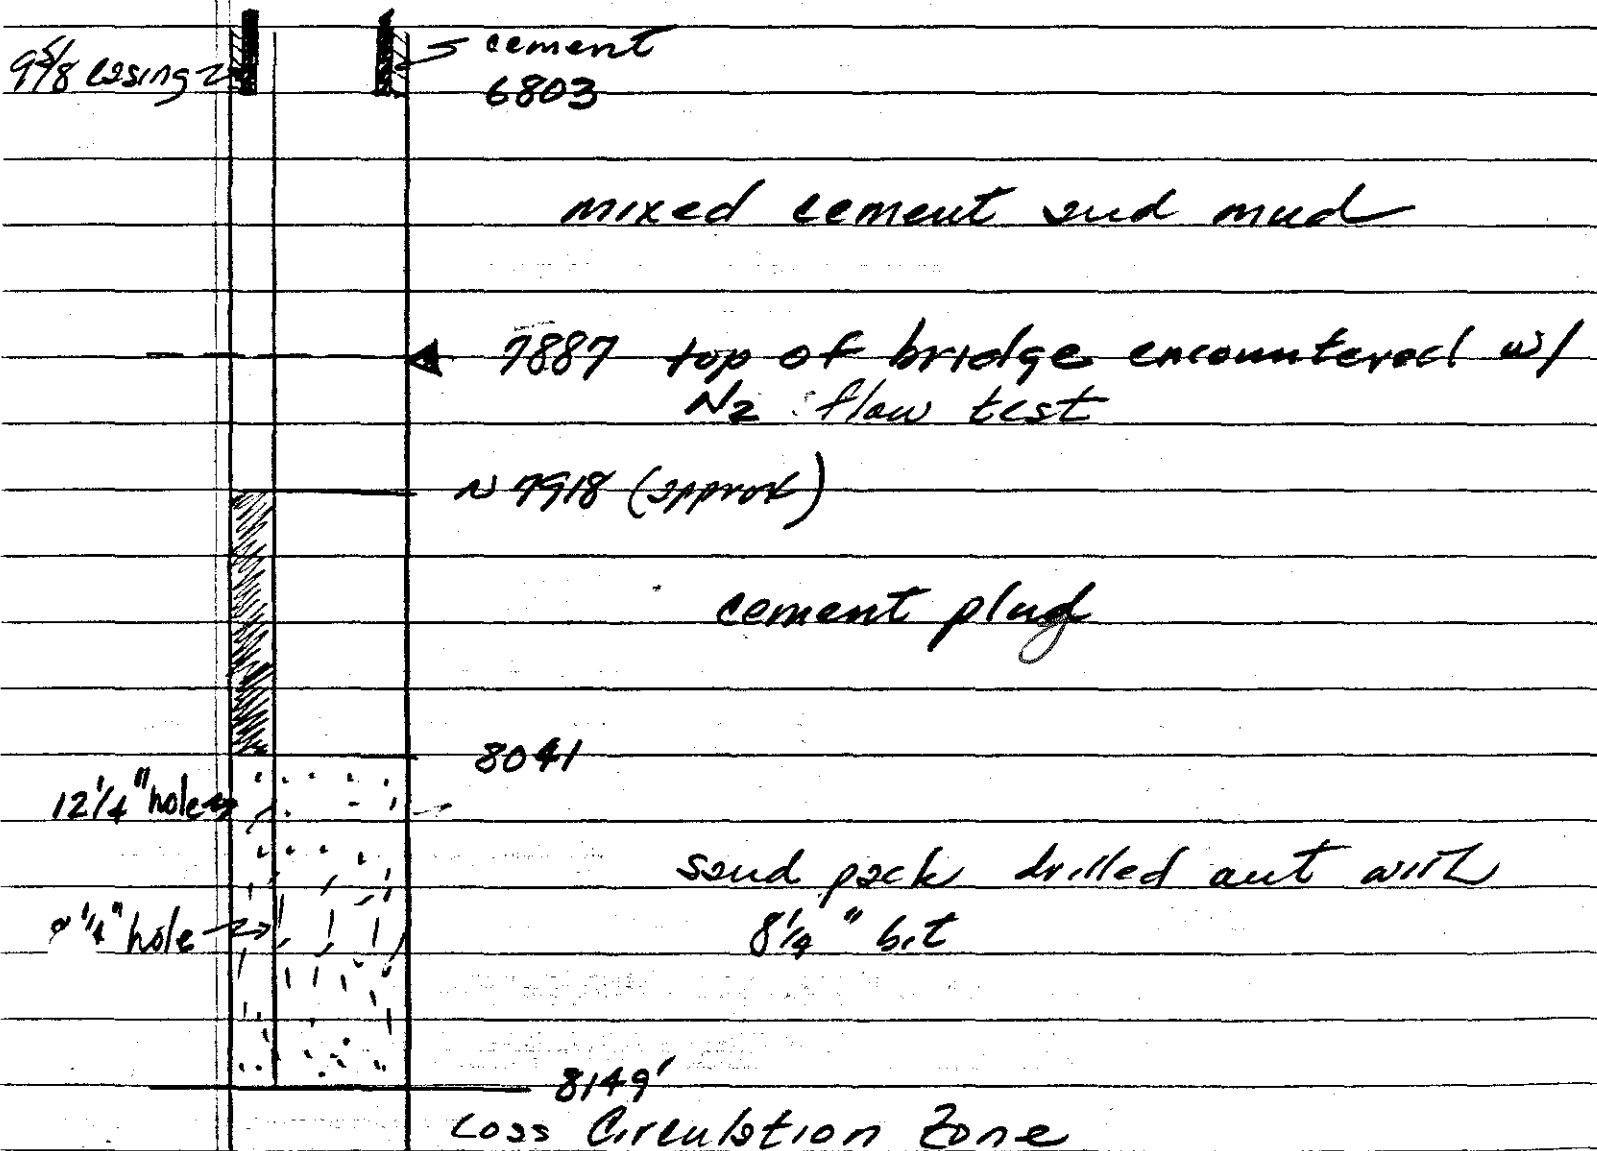 cement
9 5/8 casing
6803
mixed cement and mud
7887 top of bridge encountered w/
N2 flow test
~ 7918 (approx)
cement plug
8041
12 1/4" hole
sand pack drilled out with
1/4" hole
8 1/4" bit
8149'
Loss Circulation Zone